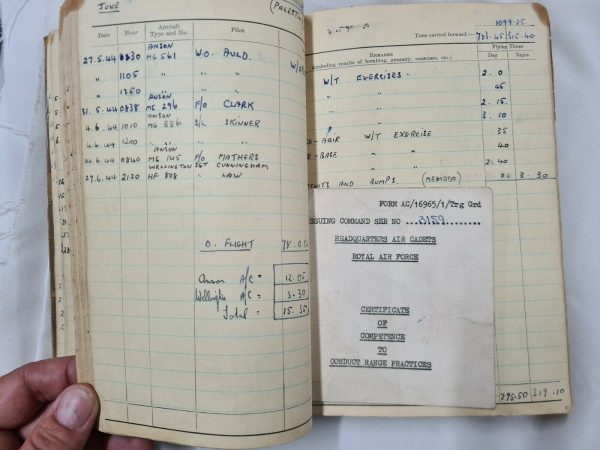 JUNE
(PALESTINE
Date Hour Aircraft Type and No. Pilot
27.5.44 0830 ANSON MG 561 W.O. AULD.
" 1105 " " "
" 1350 " " "
31.5.44 0838 ANSON MG 296 F/O CLARK
4.6.44 1010 ANSON MG 536 S/L SKINNER
4.6.44 1200 " " "
0840 ANSON MG 145 F/O MATHERS
29.6.44 2120 WELLINGTON HF 808 SGT CUNNINGHAM
" LAW
D. FLIGHT
Anson A/C = 12.05
Wellington A/C = 3.30
Total = 15.35
1099.25
Time carried forward:—
REMARKS
(including results of bombing, gunnery, exercises, etc.)
Flying Times
Day Night
W/T EXERCISES. 2.0
" " 45
" " 2.15
3.10
W/T EXERCISE 35
BASE " " 40
" " 2.40
AND BUMPS. (MEGIDDO) 3.30
FORM AC/16965/1/Trg Grd
ISSUING COMMAND SER NO ..3159........
HEADQUARTERS AIR CADETS
ROYAL AIR FORCE
CERTIFICATE
OF
COMPETENCE
TO
CONDUCT RANGE PRACTICES
795.50 319.10